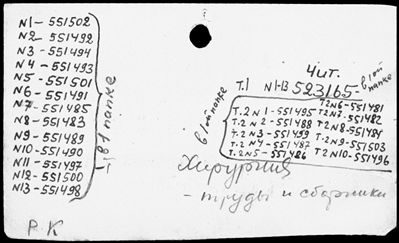 N1 - 551502
N2 - 551492
N3 - 551494
N4 - 551493
N5 - 551501
N6 - 551491
N7 - 551485
N8 - 551483
N9 - 551489
N10 - 551490
N11 - 551497
N12 - 551500
N13 - 551498
в 1 папке
Р.К
Чит.
Т.1 N1-13 523165 - в 1 ой папке
в 1 ой папке
Т.2 N1 - 551495
Т.2 N2 - 551488
Т.2 N3 - 551499
Т.2 N4 - 551487
Т.2 N5 - 551486
Т.2 N6 - 551481
Т.2 N7 - 551482
Т.2 N8 - 551484
Т.2 N9 - 551503
Т.2 N10 - 551496
Хирургия
- труды и сборники